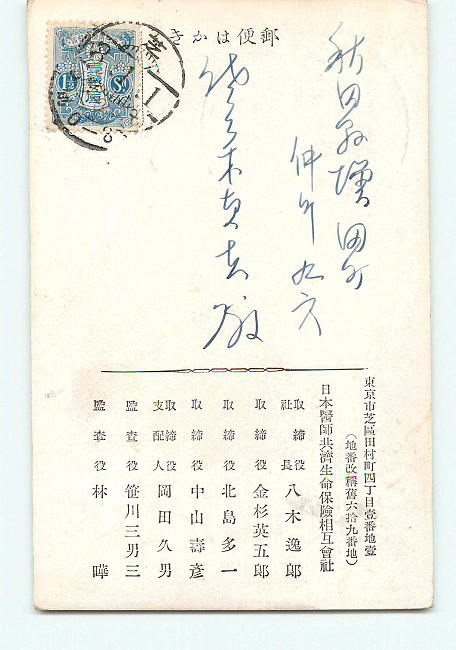 郵便はかき
秋田県増田町
仲町九六
佐々木
殿
東京市芝區田村町四丁目壹番地壹
(地番改稱舊六十九番地)
日本醫師共濟生命保險相互會社
取締役社長 八木逸郎
取締役 金杉英五郎
取締役 北島多一
取締役 中山壽彥
取締役支配人 岡田久男
監査役 笹川三男三
監査役 林曄